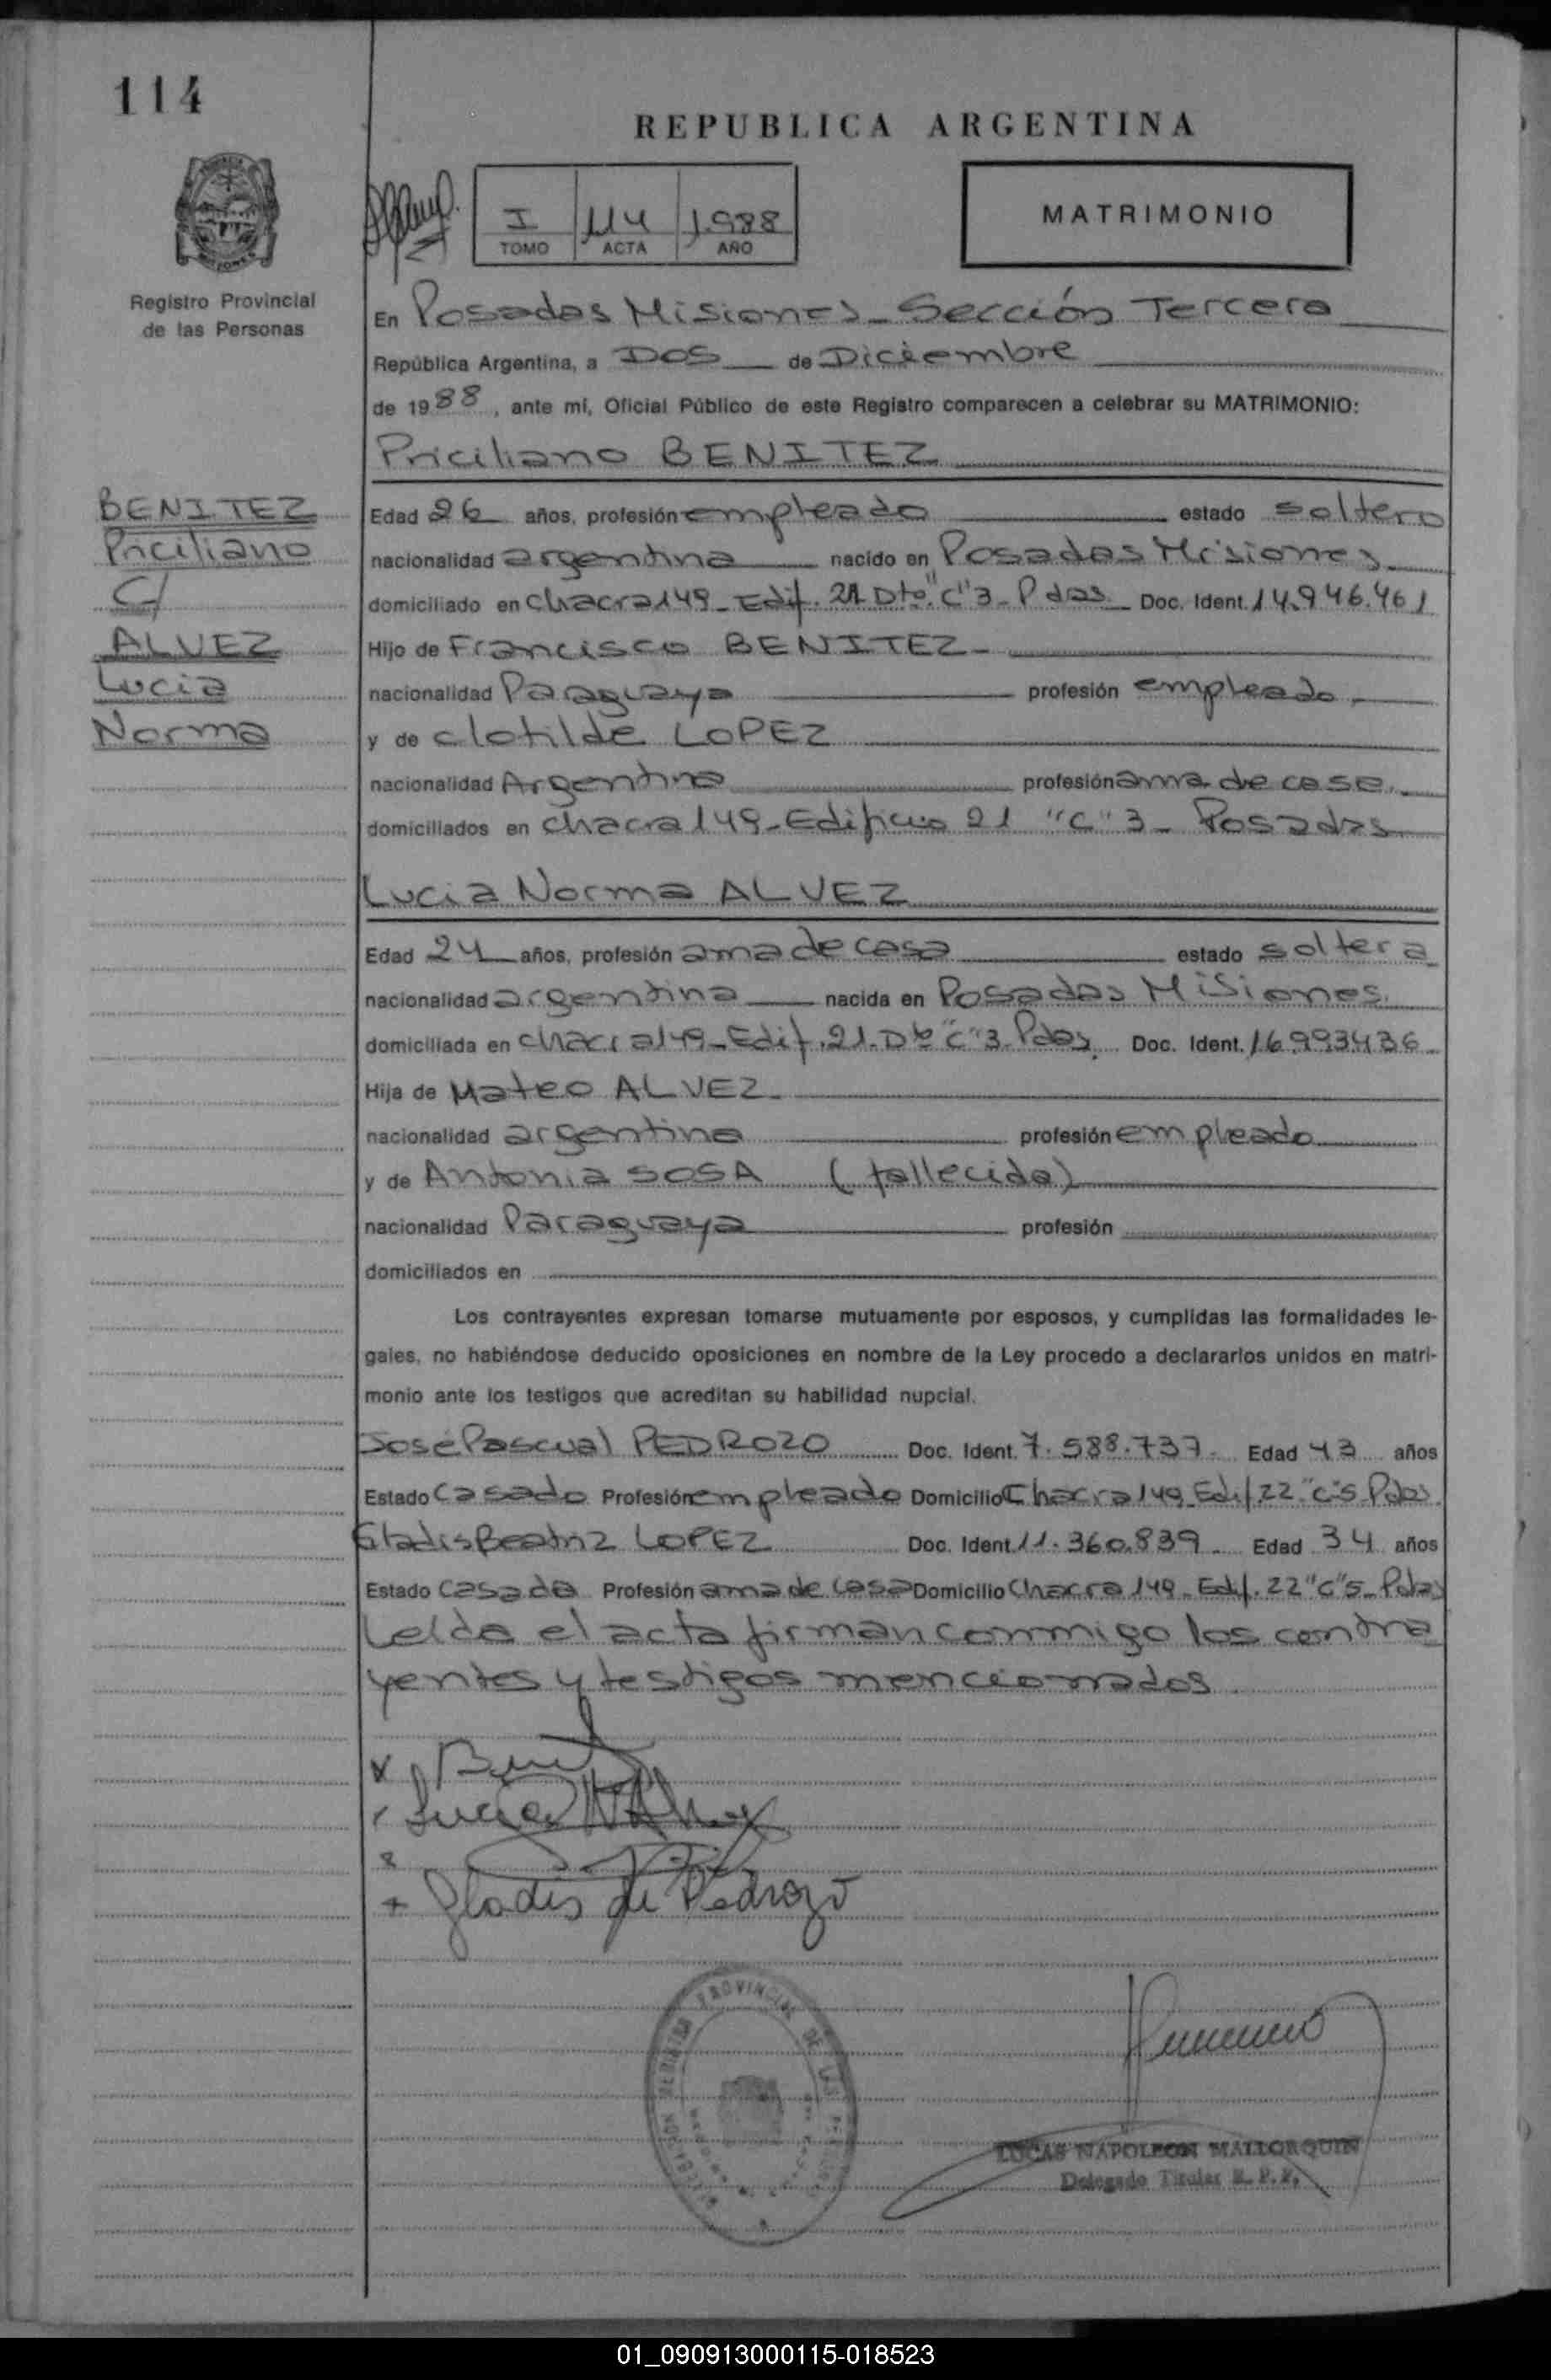 114
REPUBLICA ARGENTINA
I 114 1.988
TOMO ACTA AÑO
MATRIMONIO
Registro Provincial
de las Personas
En Posadas Misiones - Sección Tercera
República Argentina, a DOS de Diciembre
de 1988, ante mí, Oficial Público de este Registro comparecen a celebrar su MATRIMONIO:
Priciliano BENITEZ
BENITEZ
Priciliano
C/
ALVEZ
Lucia
Norma
Edad 26 años, profesión empleado estado soltero
nacionalidad argentina nacido en Posadas Misiones
domiciliado en chacra 149 - Edif. 21 Dto. "C" 3 - Pdas Doc. Ident. 14.946.461
Hijo de Francisco BENITEZ -
nacionalidad Paraguaya profesión empleado
y de Clotilde LOPEZ
nacionalidad Argentina profesión ama de casa
domiciliados en chacra 149 - Edificio 21 "C" 3 - Posadas
Lucia Norma ALVEZ
Edad 24 años, profesión ama de casa estado soltera
nacionalidad argentina nacida en Posadas Misiones
domiciliada en chacra 149 - Edif. 21 - Dto "C" 3 - Pdas. Doc. Ident. 16.993436
Hija de Mateo ALVEZ -
nacionalidad argentina profesión empleado
y de Antonia SOSA (fallecida)
nacionalidad Paraguaya profesión
domiciliados en
Los contrayentes expresan tomarse mutuamente por esposos, y cumplidas las formalidades le-
gales, no habiéndose deducido oposiciones en nombre de la Ley procedo a declararlos unidos en matri-
monio ante los testigos que acreditan su habilidad nupcial.
José Pascual PEDROZO Doc. Ident. 7.588.737 - Edad 43 años
Estado Casado Profesión empleado Domicilio Chacra 149 - Edif. 22 "C" 5 Pdas.
Gladis Beatriz LOPEZ Doc. Ident. 11.360.839 - Edad 34 años
Estado Casada Profesión ama de casa Domicilio Chacra 149 - Edif. 22 "C" 5 - Pdas
Leída el acta firman conmigo los contra
yentes y testigos mencionados
Gladis de Pedrozo
REGISTRO PROVINCIAL DE LAS
LUCAS NAPOLEON MALLORQUIN
Delegado Titular R. P. P.
01_090913000115-018523